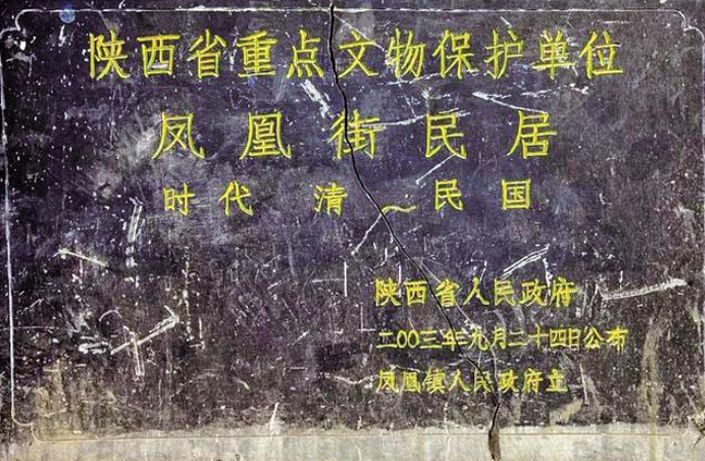 陕西省重点文物保护单位
凤凰街民居
时代 清～民国
陕西省人民政府
二〇〇三年九月二十四日公布
凤凰镇人民政府立